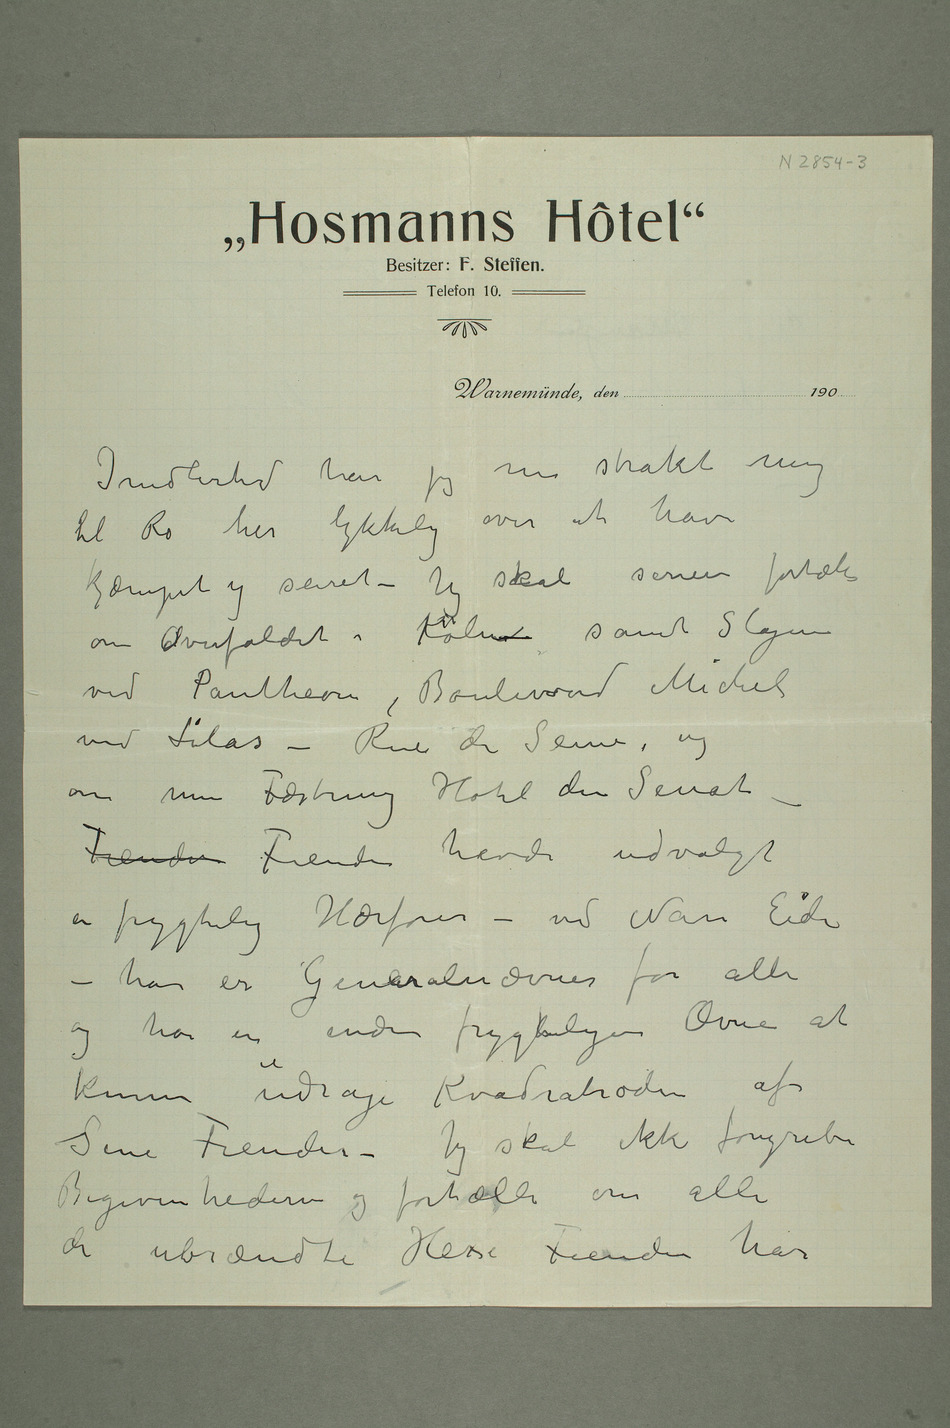 N 2854-3
„Hosmanns Hôtel“
Besitzer: F. Steffen.
Telefon 10.
Warnemünde, den 190
Imidlertid har jeg nu strakt mig
til Ro her lykkelig over at have
kjæmpet og seiret – Jeg skal senere fortælle
om Overfaldet i Köln samt Slagene
ved Pantheon, Boulevard Michel
ved Lilas – Rue de Seine, og
om min Fæstning Hotel du Senat –
Fienden Fienden havde udvalgt
en frygtelig Hærfører – ved Navn Eide
– han er Generalnævner for alle
og har en endnu frygteligere Ævne at
kunne uddrage Kvadratroden af
Sine Fiender – Jeg skal ikke foregribe
Begivenhederne og fortælle om alle
de ubrændte Hexe Fienden har